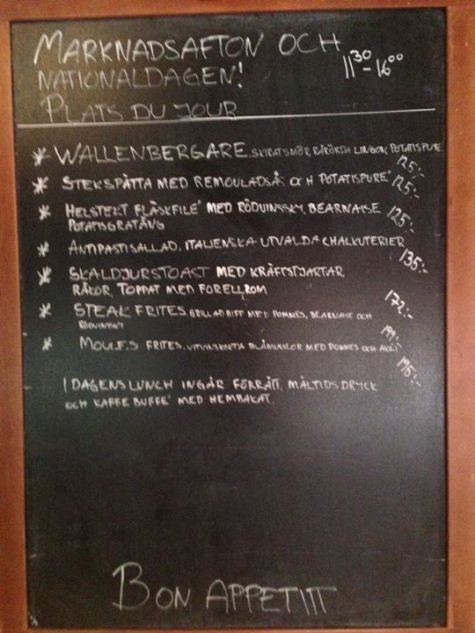 MARKNADSAFTON OCH
NATIONALDAGEN!
11 30 - 16 00
PLATS DU JOUR
* WALLENBERGARE SKIRATSMÖR, RÅRÖRDA LINGON, POTATISPURÉ 125:-
* STEKSPÄTTA MED REMOULADSÅS OCH POTATISPURÉ 125:-
* HELSTEKT FLÄSKFILÉ MED RÖDVINSSKY, BEARNAISE 125:-
POTATISGRATÄNG
* ANTIPASTISALLAD, ITALIENSKA UTVALDA CHARKUTERIER 135:-
* SKALDJURSTOAST MED KRÄFTSTJÄRTAR
RÄKOR TOPPAT MED FORELLROM 172:-
* STEAK FRITES GRILLAD BIFF MED POMMES, BEARNAISE OCH
RÖDVINSSKY 195:-
* MOULES FRITES, VITVINSKOKTA BLÅMUSSLOR MED POMMES OCH AIOLI 195:-
I DAGENS LUNCH INGÅR FÖRRÄTT, MÅLTIDSDRYCK
OCH KAFFE BUFFÉ MED HEMBAKAT.
BON APPETITT